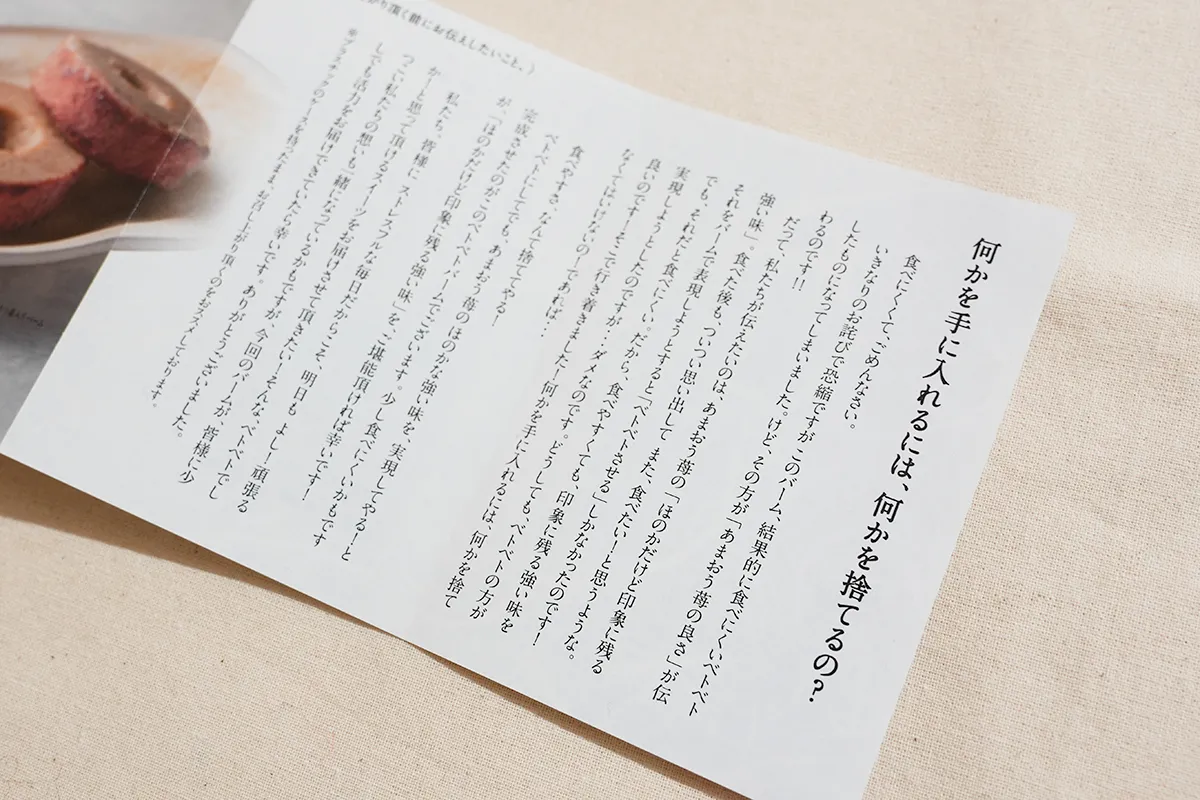 何かを手に入れるには、何かを捨てるの？
食べにくくて、ごめんなさい。
いきなりのお詫びで恐縮ですが このバーム、結果的に食べにくいベトベト
したものになってしまいました。けど、その方が「あまおう苺の良さ」が伝
わるのです!!
だって、私たちが伝えたいのは、あまおう苺の「ほのかだけど印象に残る
強い味」。食べた後も、ついつい思い出して また、食べたい!と思うような。
それをバームで表現しようとすると「ベトベトさせる」しかなかったのです!
でも、それだと食べにくい。だから、食べやすくても、印象に残る強い味を
実現しようとしたのですが…ダメなのです。どうしても、ベトベトの方が
良いのです!そこで行き着きました!何かを手に入れるには、何かを捨て
なくてはいけないの!であれば…
食べやすさ、なんて捨ててやる!
ベトベトにしてでも、あまおう苺のほのかな強い味を、実現してやる!と
完成させたのがこのベトベトバームでございます。少し食べにくいかもです
が、「ほのかだけど印象に残る強い味」を、ご堪能頂ければ幸いです!
私たち、皆様に ストレスフルな毎日だからこそ、明日も よし!頑張る
かーと思って頂けるスイーツをお届けさせて頂きたい!そんな、ベトベトでし
つこい私たちの想いも一緒になっているかもですが、今回のバームが、皆様に少
しでも活力をお届けできていたら幸いです。ありがとうございました。
※プラスチックのケースを持ったまま、お召し上がり頂くのをおススメしております。
がり頂く前にお伝えしたいこと。)